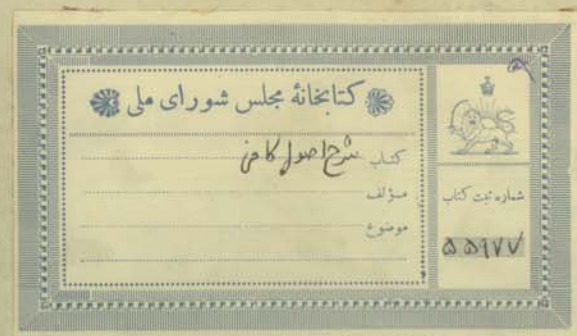 کتابخانهٔ مجلس شورای ملی
کتاب شرح اصول کافی
مؤلف
موضوع
شماره ثبت کتاب
۵۵۹۷۷